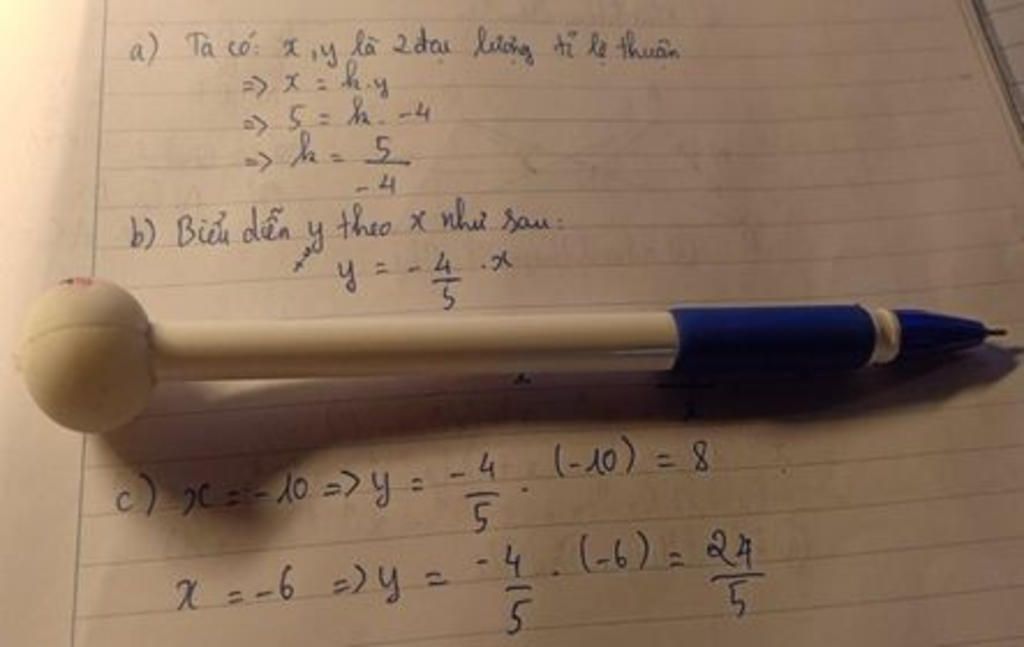 a) Ta có: x, y là 2 đại lượng tỉ lệ thuận
=> x = k.y
=> 5 = k. -4
=> k = 5/-4
b) Biểu diễn y theo x như sau:
y = -4/5 .x
c) x = -10 => y = -4/5 . (-10) = 8
x = -6 => y = -4/5 . (-6) = 24/5